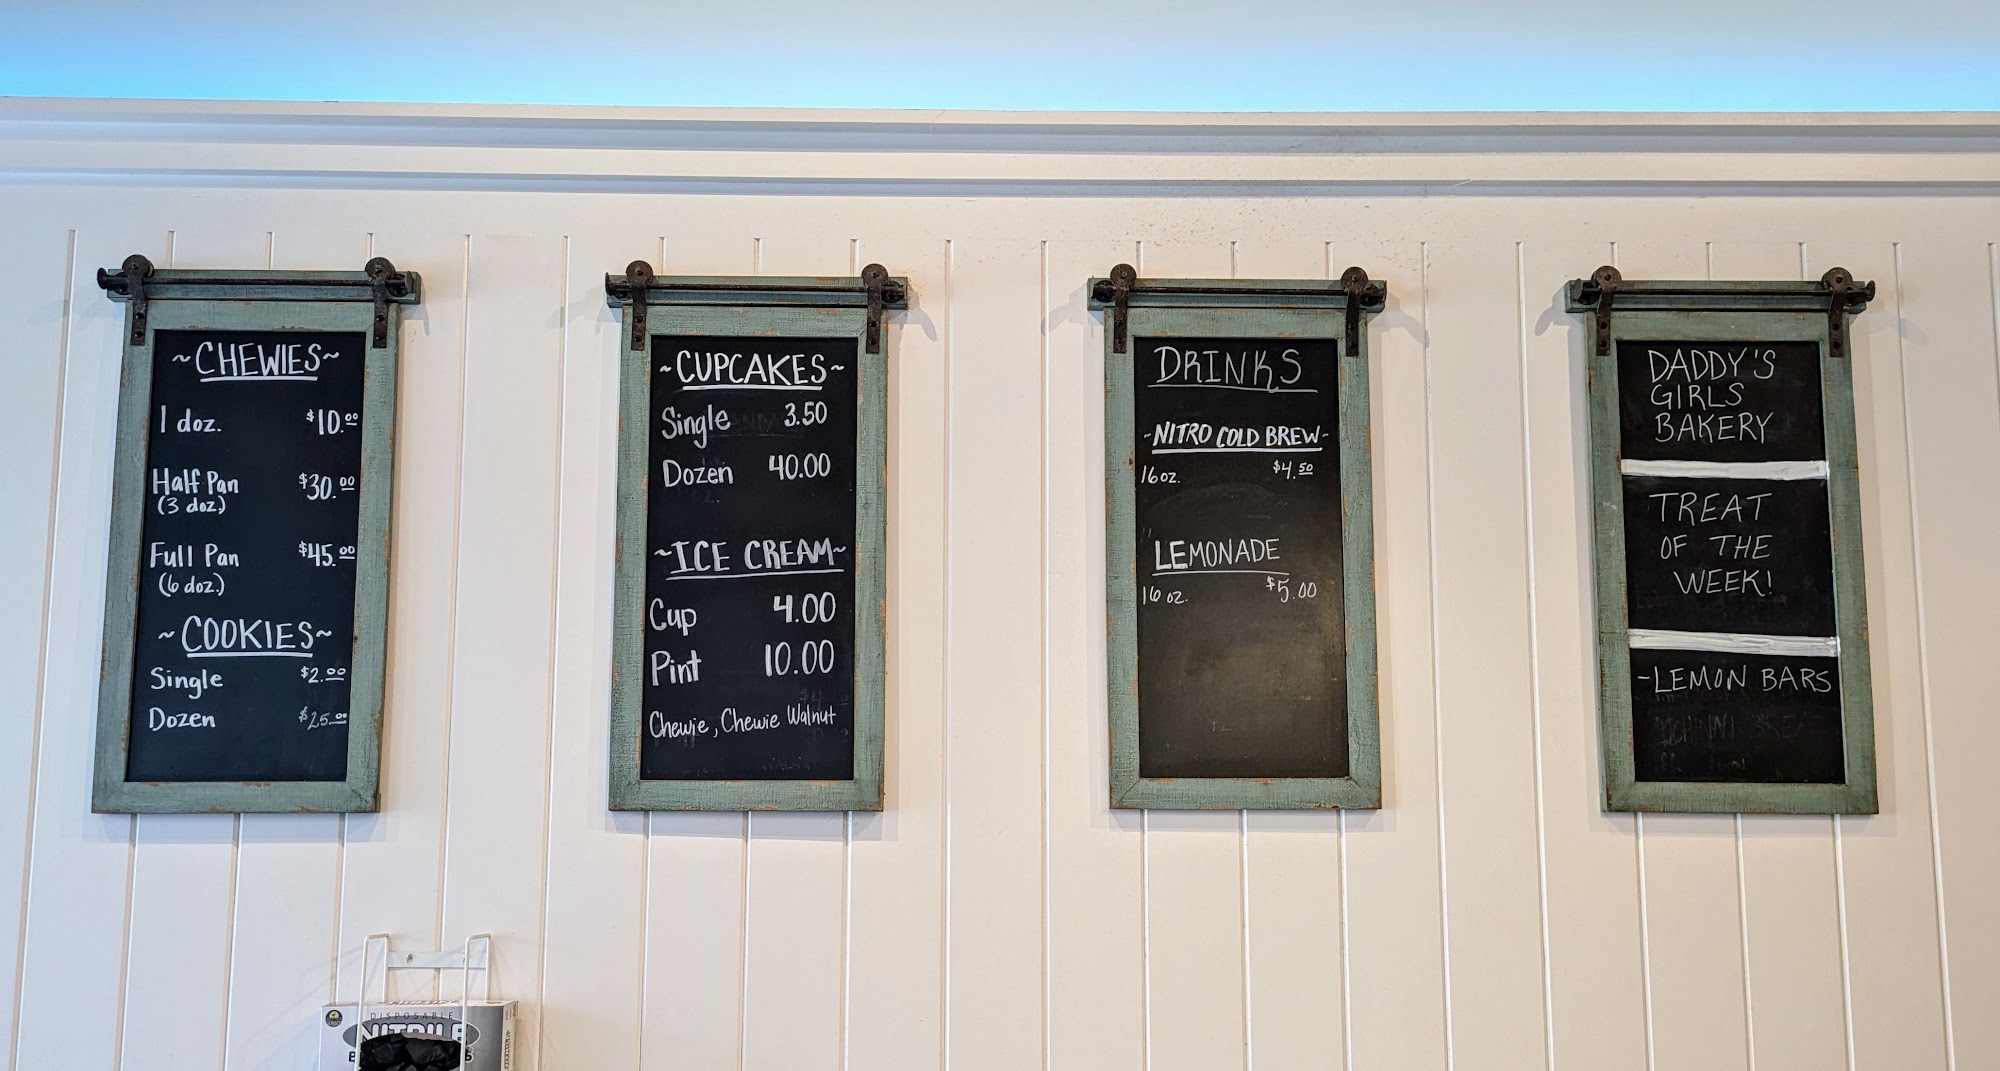 ~CHEWIES~
1 doz. $10.00
Half Pan $30.00
(3 doz.)
Full Pan $45.00
(6 doz.)
~COOKIES~
Single $2.00
Dozen $25.00
~CUPCAKES~
Single 3.50
Dozen 40.00
~ICE CREAM~
Cup 4.00
Pint 10.00
Chewie, Chewie Walnut
DRINKS
-NITRO COLD BREW-
16oz. $4.50
LEMONADE
16 oz. $5.00
DADDY'S
GIRLS
BAKERY
TREAT
OF THE
WEEK!
-LEMON BARS
DISPOSABLE
NITRILE